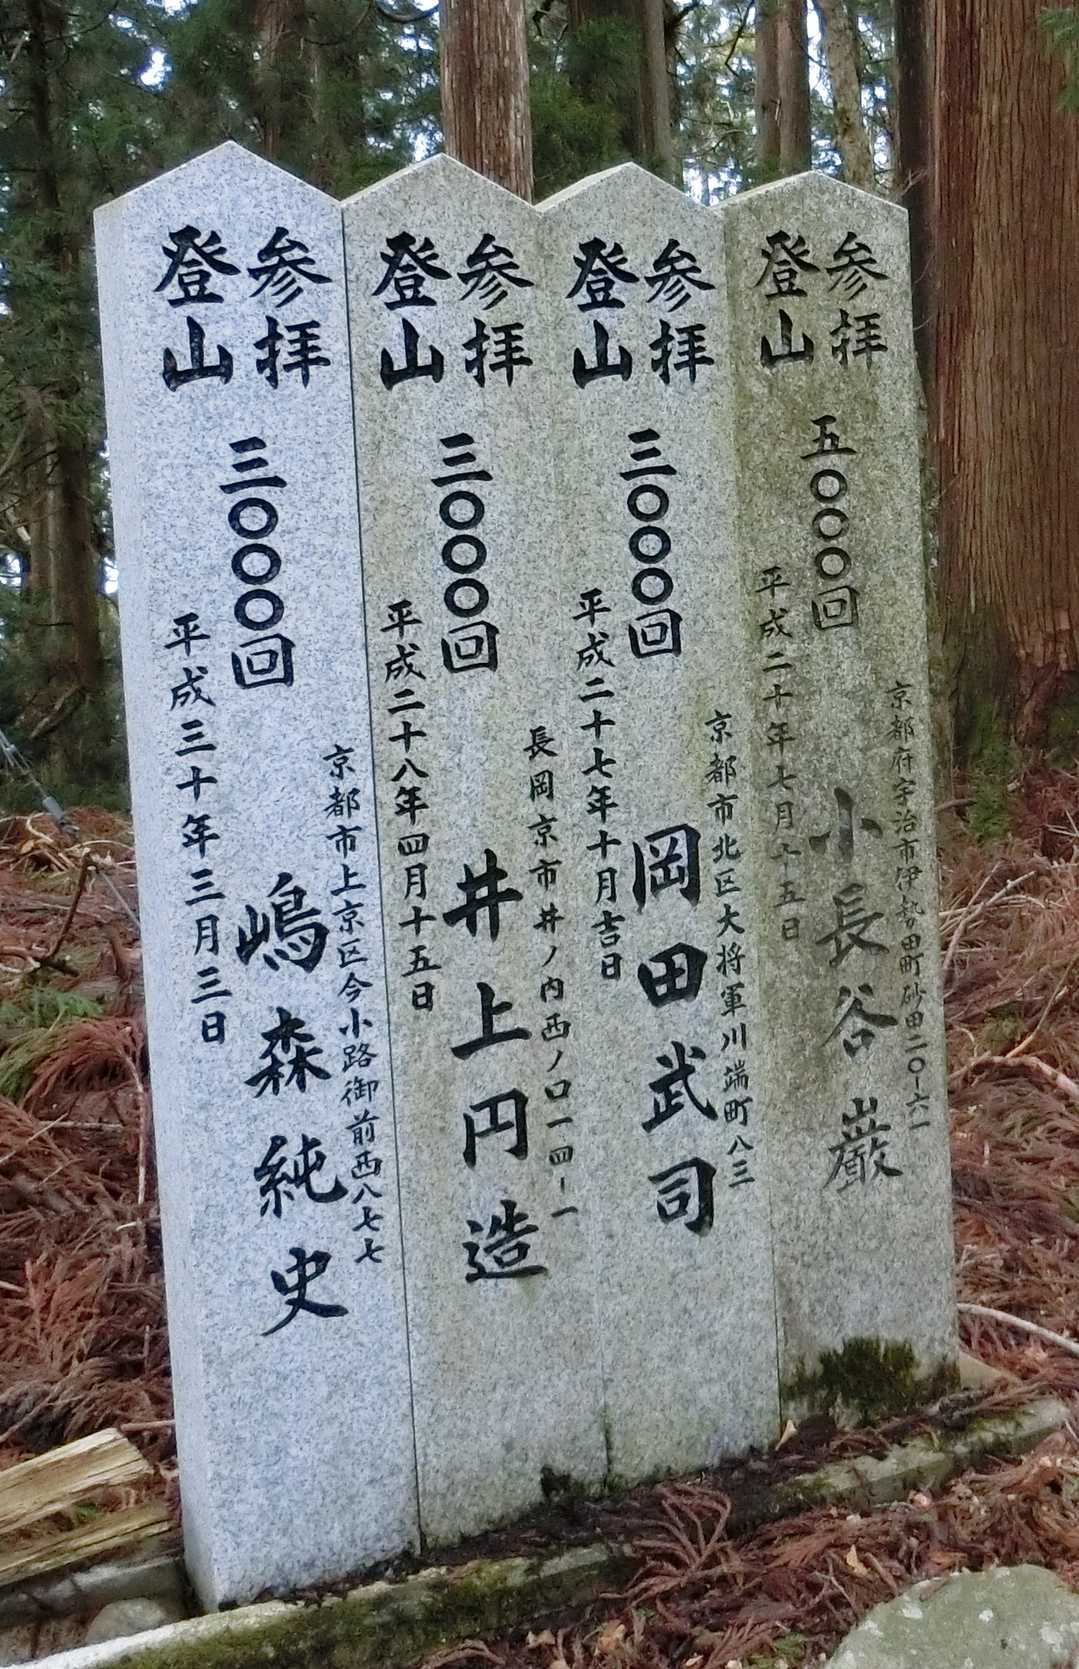 参拝
登山
五〇〇〇回
京都府宇治市伊勢田町砂田二〇-六一
小長谷巌
平成二十年七月十五日
参拝
登山
三〇〇〇回
京都市北区大将軍川端町八三
岡田武司
平成二十七年十月吉日
参拝
登山
三〇〇〇回
長岡京市井ノ内西ノ口一四-一
井上円造
平成二十八年四月十五日
参拝
登山
三〇〇〇回
京都市上京区今小路御前西八七七
嶋森純史
平成三十年三月三日